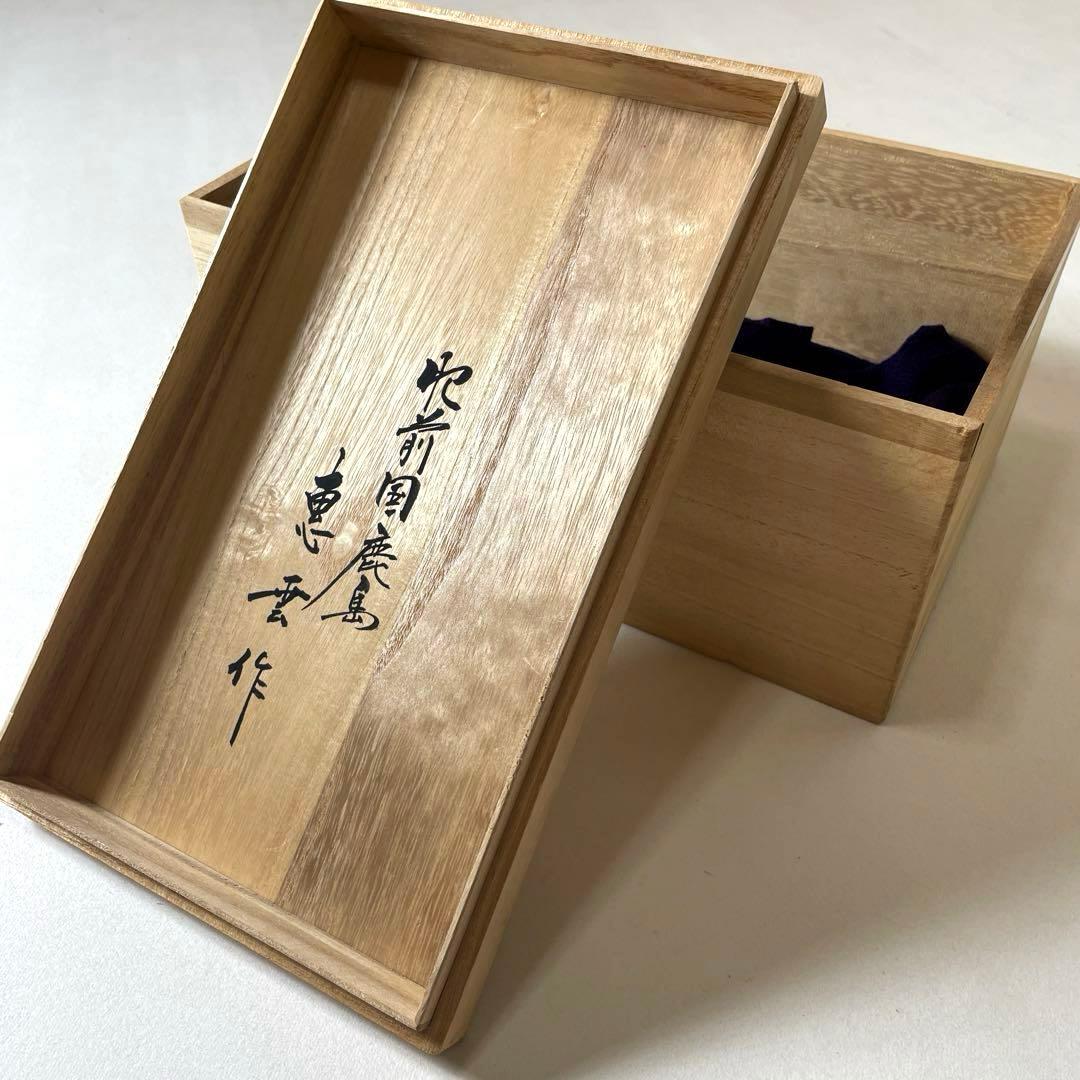 肥前国鹿島
恵雲作